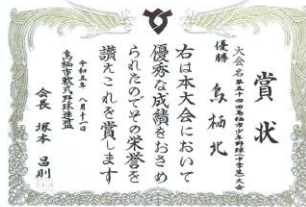 賞状
大会名 第五十四回鳥栖市少年野球(中学生)大会
優勝
鳥栖北
右は本大会において
優秀な成績をおさめ
られたのでその栄誉を
讃えこれを賞します
令和五年 八月十一日
鳥栖市軟式野球連盟
会長 塚本 昌則